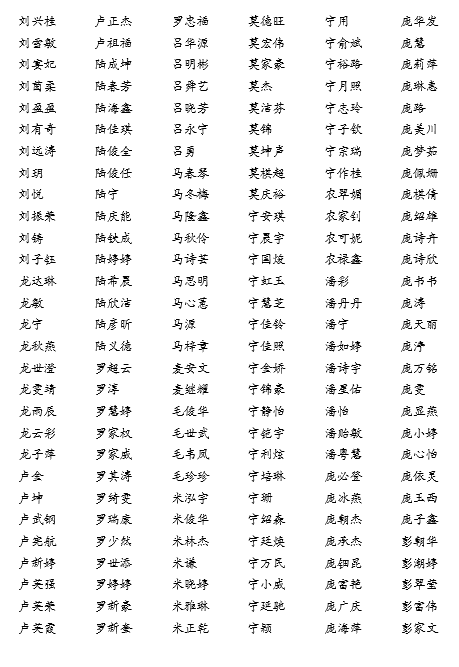 刘兴桂 卢正杰 罗忠福 莫德旺 宁用 庞华发
刘雪敏 卢祖福 吕华源 莫宏伟 宁俞斌 庞慧
刘寡妃 陆成坤 吕明彬 莫家豪 宁裕路 庞莉萍
刘茵柔 陆春芳 吕舜艺 莫杰 宁月照 庞琳惠
刘盈盈 陆海鑫 吕晓芳 莫洁芬 宁志玲 庞路
刘有奇 陆佳琪 吕永宁 莫锦 宁子钦 庞美川
刘远涛 陆俊全 吕勇 莫坤声 宁宗瑞 庞梦茹
刘玥 陆俊任 马春琴 莫棋超 宁作桂 庞佩姗
刘悦 陆宁 马冬梅 莫庆裕 农翠媚 庞棋倩
刘振荣 陆庆能 马隆鑫 宁安琪 农家钊 庞绍雄
刘铸 陆铁成 马秋伶 宁晨宇 农可妮 庞诗卉
刘子钰 陆婷婷 马诗芸 宁国焌 农禄鑫 庞诗欣
龙达琳 陆希晨 马思明 宁虹玉 潘彩 庞书书
龙敏 陆欣洁 马心蕙 宁慧芝 潘丹丹 庞涛
龙宇 陆彦昕 马源 宁佳铃 潘宁 庞天丽
龙秋燕 陆义德 马梓章 宁佳照 潘如婷 庞渟
龙世澄 罗超云 麦安文 宁金娇 潘诗宇 庞万铭
龙雯琦 罗淳 麦继耀 宁锦豪 潘星佑 庞雯
龙雨辰 罗慧婷 毛俊华 宁静怡 潘怡 庞显燕
龙云彩 罗家权 毛世武 宁铠宇 潘贻敏 庞小婷
龙子萍 罗家威 毛韦凤 宁利炫 潘粤慧 庞心怡
卢金 罗其涛 毛珍珍 宁培琳 庞必登 庞依灵
卢坤 罗绮雯 米泓宇 宁珊 庞冰燕 庞玉西
卢武钢 罗瑞康 米俊华 宁绍森 庞朝杰 庞子鑫
卢宪航 罗少然 米林杰 宁廷焕 庞承杰 彭朝华
卢新婷 罗世添 米谦 宁万民 庞钿昆 彭潮婷
卢英强 罗婷婷 米晓婷 宁小威 庞富艳 彭翠莹
卢英荣 罗新豪 米雅琳 宁廷驰 庞广庆 彭富伟
卢英霞 罗新奎 米正乾 宁颖 庞海萍 彭家文